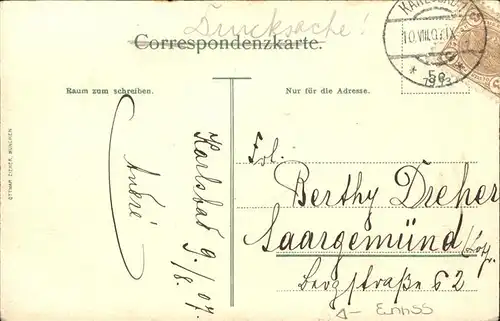 Drucksache!
Correspondenzkarte.
Raum zum schreiben.
Nur für die Adresse.
KARLSBAD
10.VIII.07.IX
5e
7913
OTTMAR ZIEHER, MÜNCHEN
Karlsbad 9./8. 07.
André
Frl.
Berthy Dreher
Saargemünd/Lothr.
Bergstraße 62